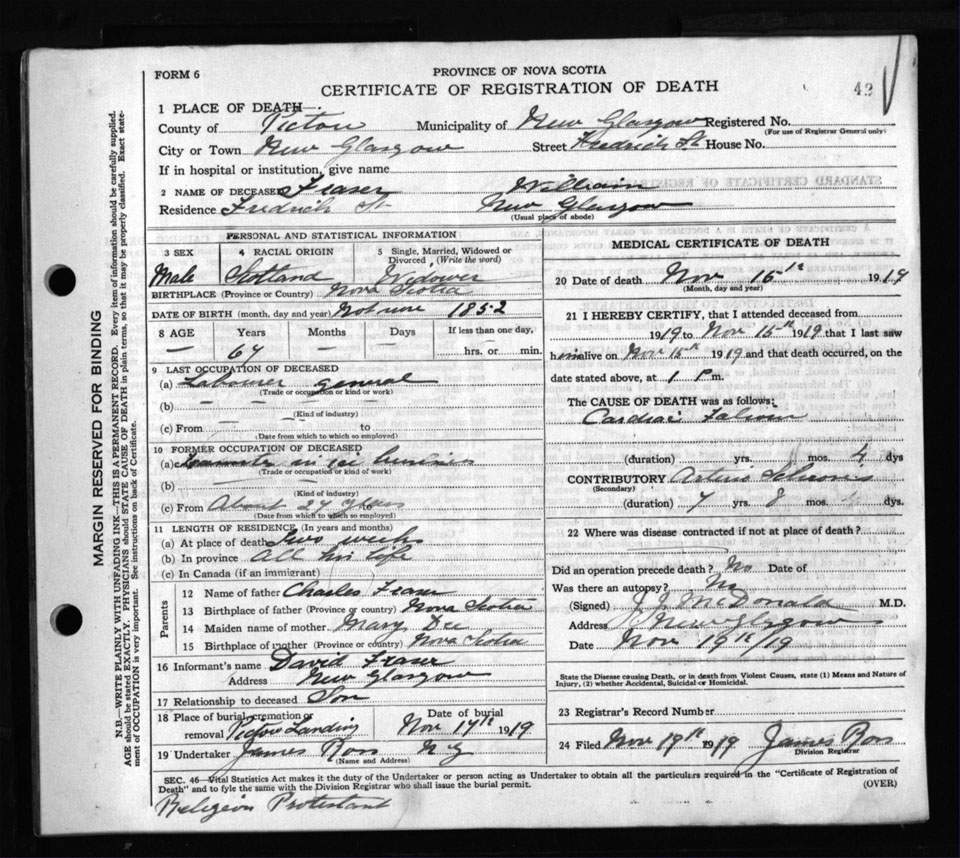 FORM 6
PROVINCE OF NOVA SCOTIA
CERTIFICATE OF REGISTRATION OF DEATH
42
1 PLACE OF DEATH
County of Pictou Municipality of New Glasgow Registered No.
(For use of Registrar General only)
City or Town New Glasgow Street Fredrich St House No.
If in hospital or institution, give name
2 NAME OF DECEASED Fraser William
Residence Fredrich St New Glasgow
(Usual place of abode)
PERSONAL AND STATISTICAL INFORMATION
3 SEX 4 RACIAL ORIGIN 5 Single, Married, Widowed or Divorced (Write the word)
Male Scotland Widower
BIRTHPLACE (Province or Country) Nova Scotia
DATE OF BIRTH (month, day and year) Not sure 1852
8 AGE Years Months Days If less than one day,
— 67 — — hrs. or min.
9 LAST OCCUPATION OF DECEASED
(a) Labourer general
(Trade or occupation or kind of work)
(b) — — —
(Kind of industry)
(c) From — to
(Date from which to which so employed)
10 FORMER OCCUPATION OF DECEASED
(a) in business
(Trade or occupation or kind of work)
(b)
(Kind of industry)
(c) From About 27
(Date from which to which so employed)
11 LENGTH OF RESIDENCE (In years and months)
(a) At place of death Two weeks
(b) In province All his life
(c) In Canada (if an immigrant)
Parents
12 Name of father Charles Fraser
13 Birthplace of father (Province or country) Nova Scotia
14 Maiden name of mother Mary Dee
15 Birthplace of mother (Province or country) Nova Scotia
16 Informant's name David Fraser
Address New Glasgow
17 Relationship to deceased Son
18 Place of burial, cremation or removal Pictou Landing Date of burial Nov 17th 1919
19 Undertaker James Ross N G
(Name and Address)
MEDICAL CERTIFICATE OF DEATH
20 Date of death Nov 15th 1919
(Month, day and year)
21 I HEREBY CERTIFY, that I attended deceased from
1919 to Nov 15th 1919 that I last saw
him alive on Nov 15th 1919 and that death occurred, on the
date stated above, at 1 P. m.
The CAUSE OF DEATH was as follows:
Cardiac Failure
(duration) yrs. mos. 4 dys
CONTRIBUTORY Arterio Sclerosis
(Secondary)
(duration) 7 yrs. 8 mos. dys.
22 Where was disease contracted if not at place of death?
Did an operation precede death? No Date of
Was there an autopsy? No
(Signed) J. J. McDonald M.D.
Address New Glasgow
Date Nov 19th/19
State the Disease causing Death, or in death from Violent Causes, state (1) Means and Nature of Injury, (2) whether Accidental, Suicidal or Homicidal.
23 Registrar's Record Number
24 Filed Nov 19th 1919 James Ross
Division Registrar
SEC. 46—Vital Statistics Act makes it the duty of the Undertaker or person acting as Undertaker to obtain all the particulars required in the "Certificate of Registration of
Death" and to fyle the same with the Division Registrar who shall issue the burial permit.
(OVER)
Religion Protestant
MARGIN RESERVED FOR BINDING
N.B.—WRITE PLAINLY WITH UNFADING INK—THIS IS A PERMANENT RECORD. Every item of information should be carefully supplied.
AGE should be stated EXACTLY. PHYSICIANS should STATE CAUSE OF DEATH in plain terms, so that it may be properly classified. Exact statement of OCCUPATION is very important. See instructions on back of Certificate.